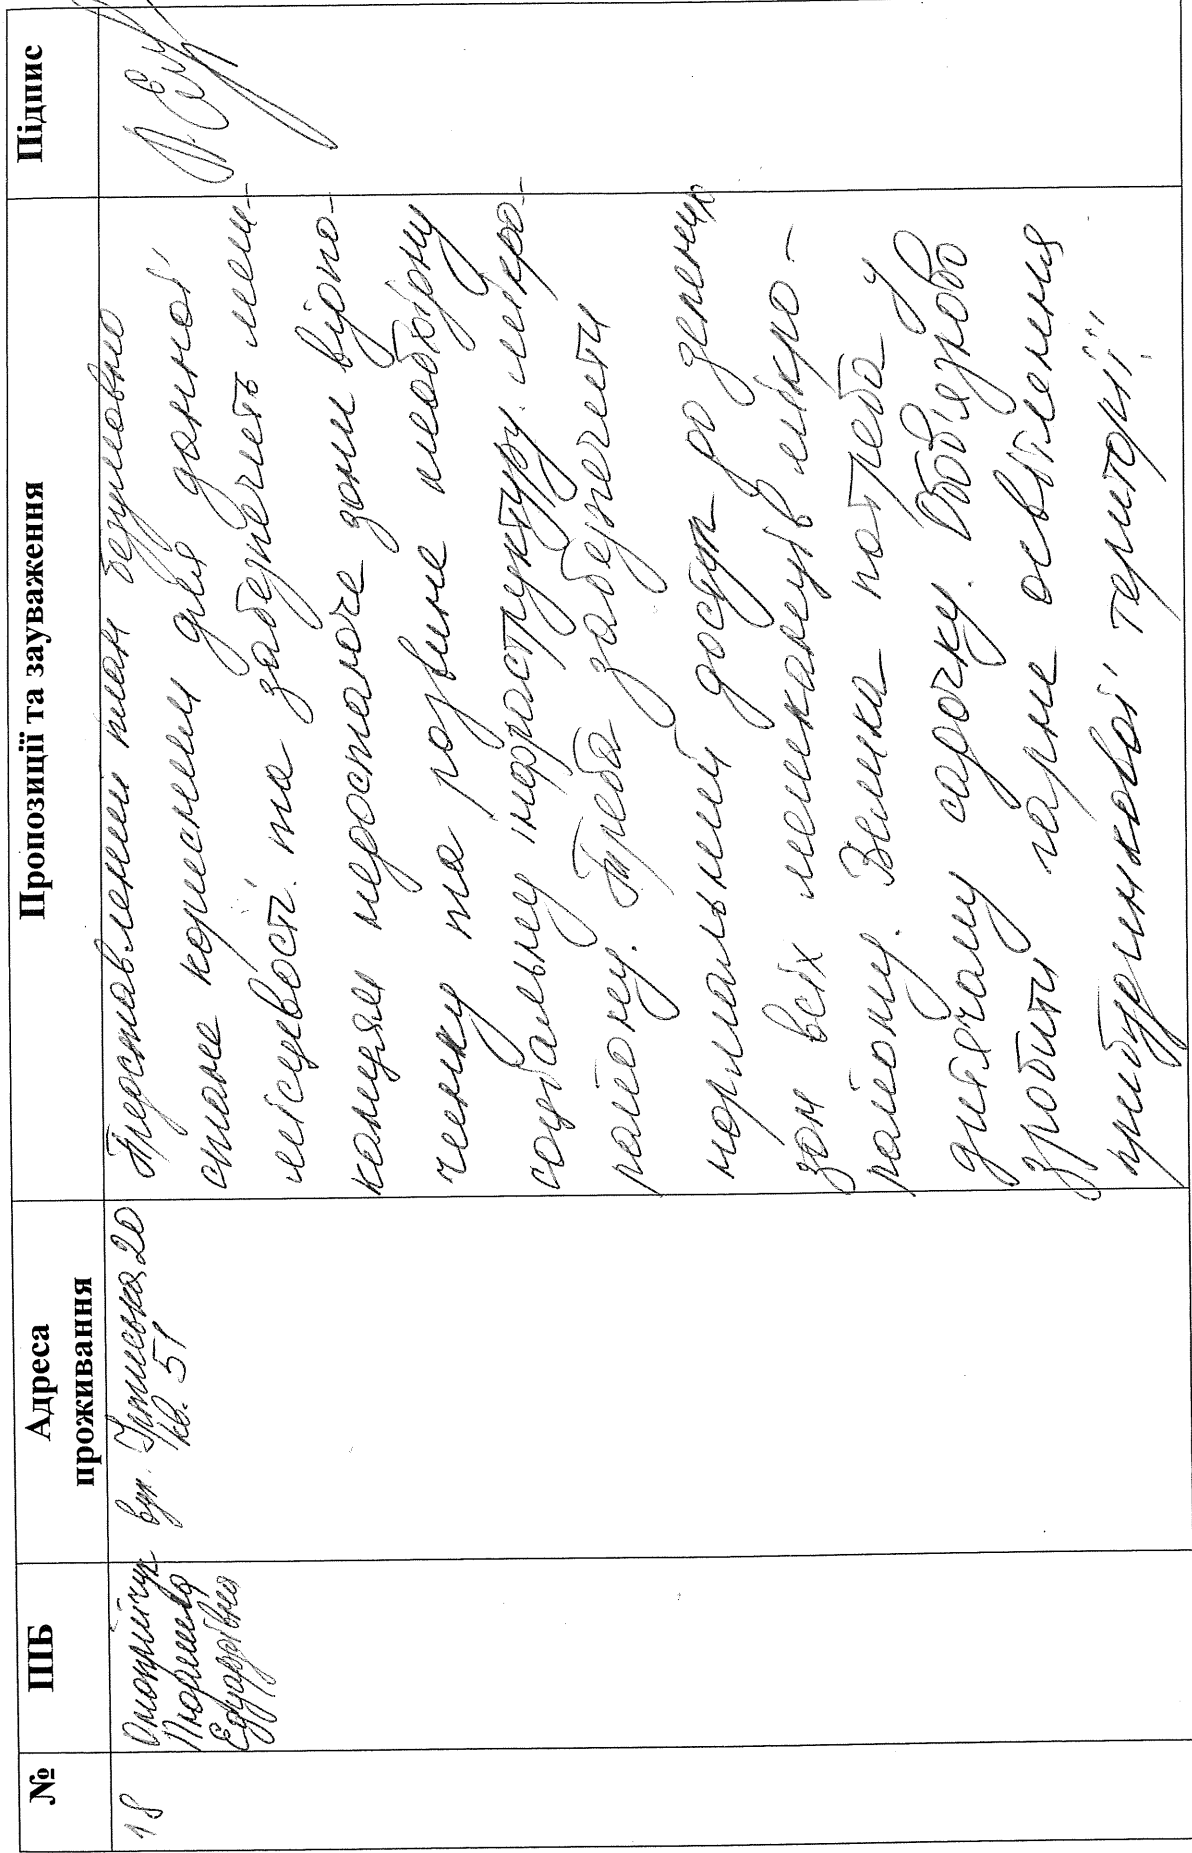 №
ПІБ
Адреса
проживання
Пропозиції та зауваження
Підпис
18
Онопрійчук
Людмила
Едуардівна
вул. Ірпінська 20
кв. 51
Представлений план безумовно
стане корисним для данної
місцевості та забезпечить меш-
канцям недостаюче зони відпо-
чинку та розвине необхідну
соціальну інфраструктуру мікро-
району. Треба забезпечити
нормальний доступ до зелених
зон всіх мешканців в мікро-
районі. Велика потреба у
дитячому садочку. Обов'язково
зробити гарне освітлення
прибудинкової території!